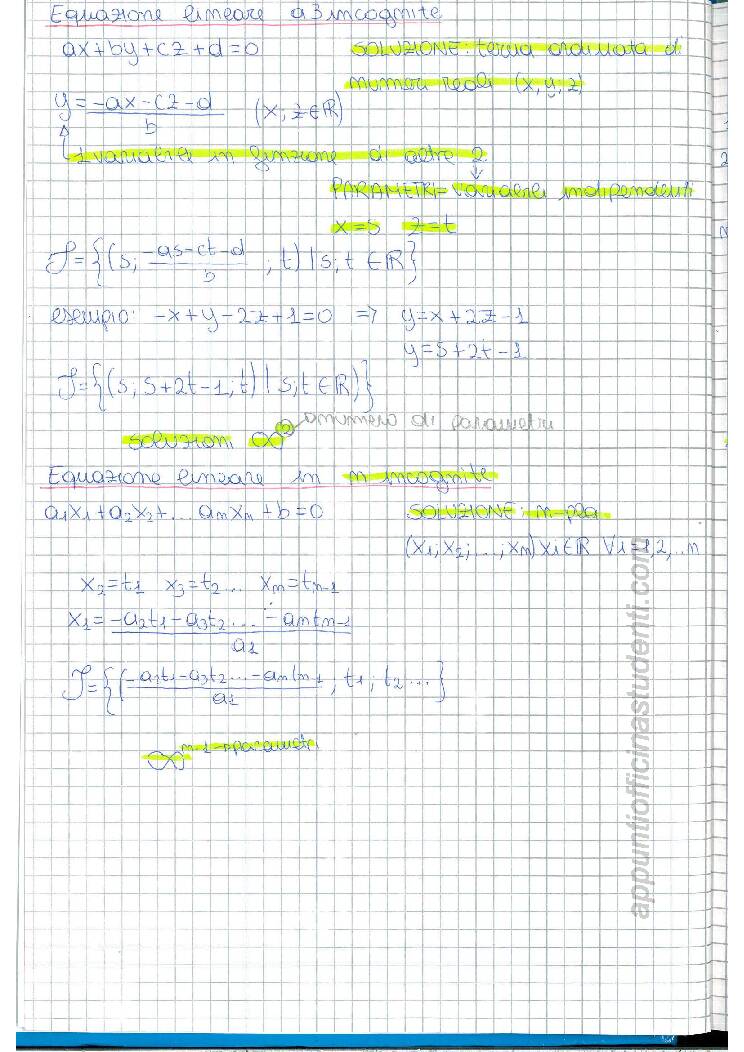 Equazione lineare a 3 incognite
ax+by+cz+d=0 SOLUZIONE: terna ordinata di
numeri reali (x,y,z)
y = (-ax-cz-d)/b (x; z∈ℝ)
1 variabile in funzione di altre 2
PARAMETRI= variabili indipendenti
x=s z=t
S={(s; (-as-ct-d)/b ; t) | s; t ∈ℝ}
esempio: -x+y-2z+1=0 => y=x+2z-1
y=s+2t-1
S={(s; s+2t-1; t) | s;t∈ℝ)}
soluzioni ∞² → numero di parametri
Equazione lineare in n incognite
a1x1+a2x2+... anxn+b=0 SOLUZIONE: n-pla
(x1; x2; ...; xn) xi∈ℝ ∀i=1,2,...n
x2=t1 x3=t2... xn=tn-1
x1= (-a2t1-a3t2... -antn-1)/a1
S={(-a2t1-a3t2...-antn-1)/a1 ; t1; t2...}
∞ⁿ⁻¹→parametri
appuntiofficinastudenti.com